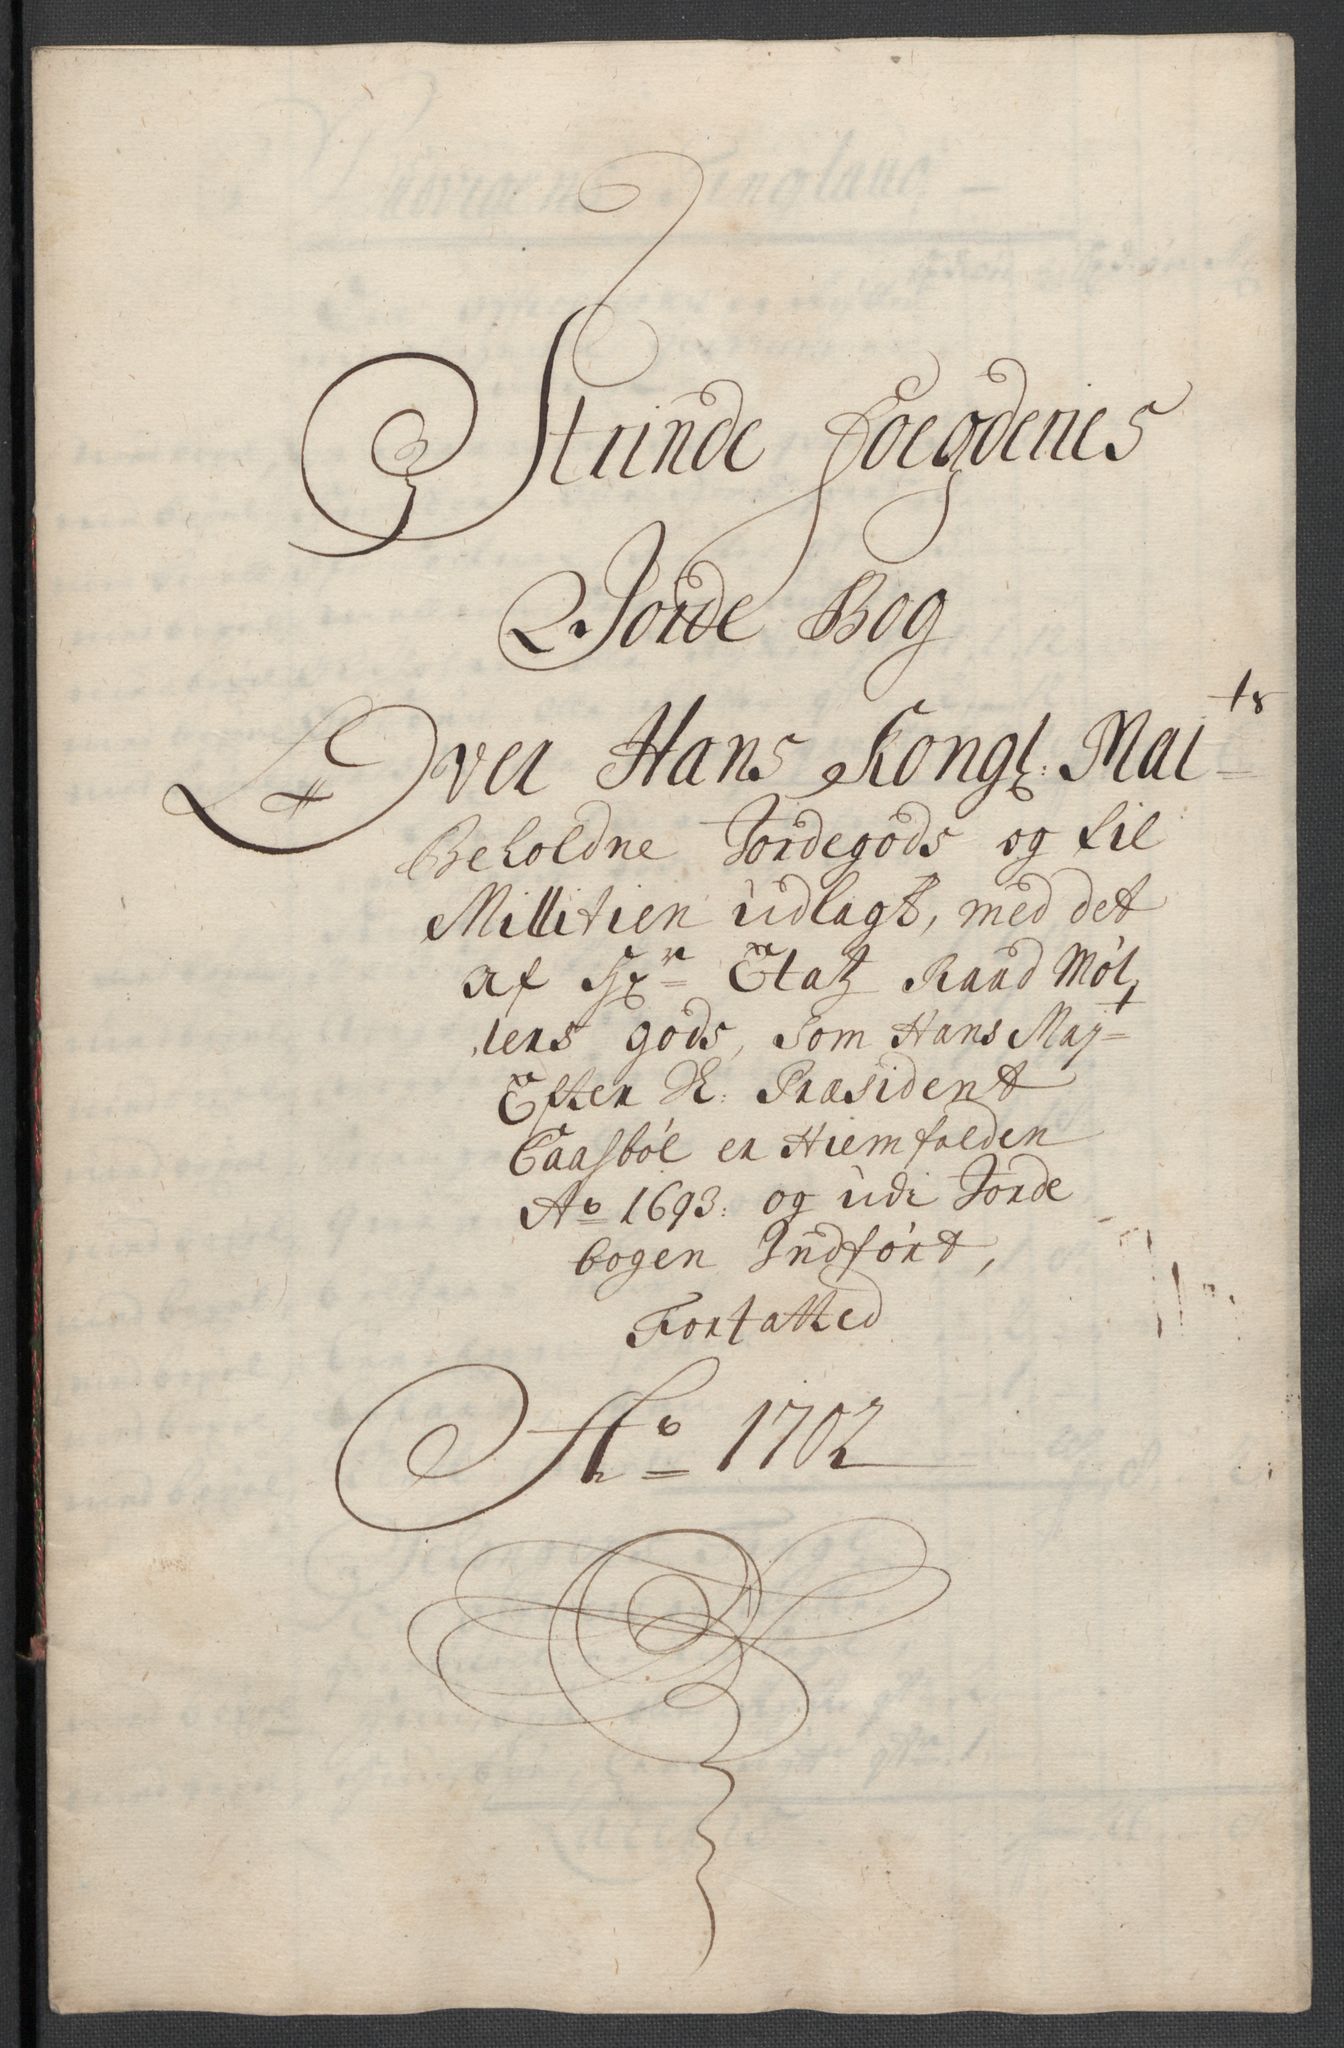 Strinde Foegderies
Jorde Bog
Over Hans Kongl: Mai ts
Beholdne Jordegods og til
Millitien üdlagt, med det
af Hr Etatz Raad Möl,
lers gods, Som Hans Maj t
Efter H: Præsident
Caasböl er Hiemfalden
Ao 1693: og üdi Jorde
bogen Indfört,
Forfatted
Ao 1702